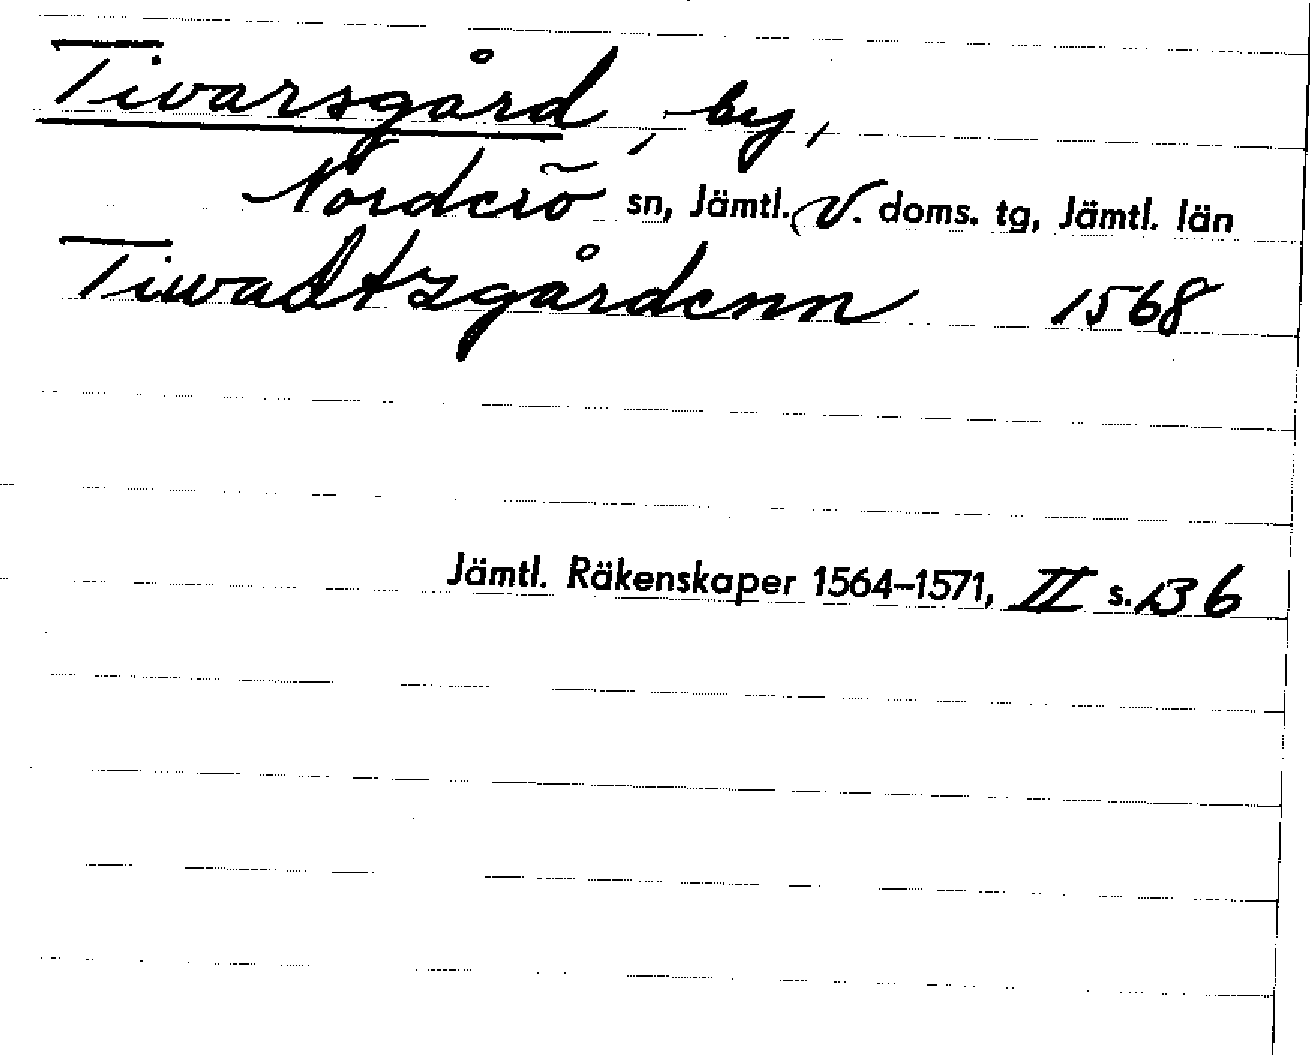 Tivarsgård, by,
Norderö sn, Jämtl. V. doms. tg, Jämtl. län
Tiwadtzgårdenn 1568
Jämtl. Räkenskaper 1564–1571, II s. 136